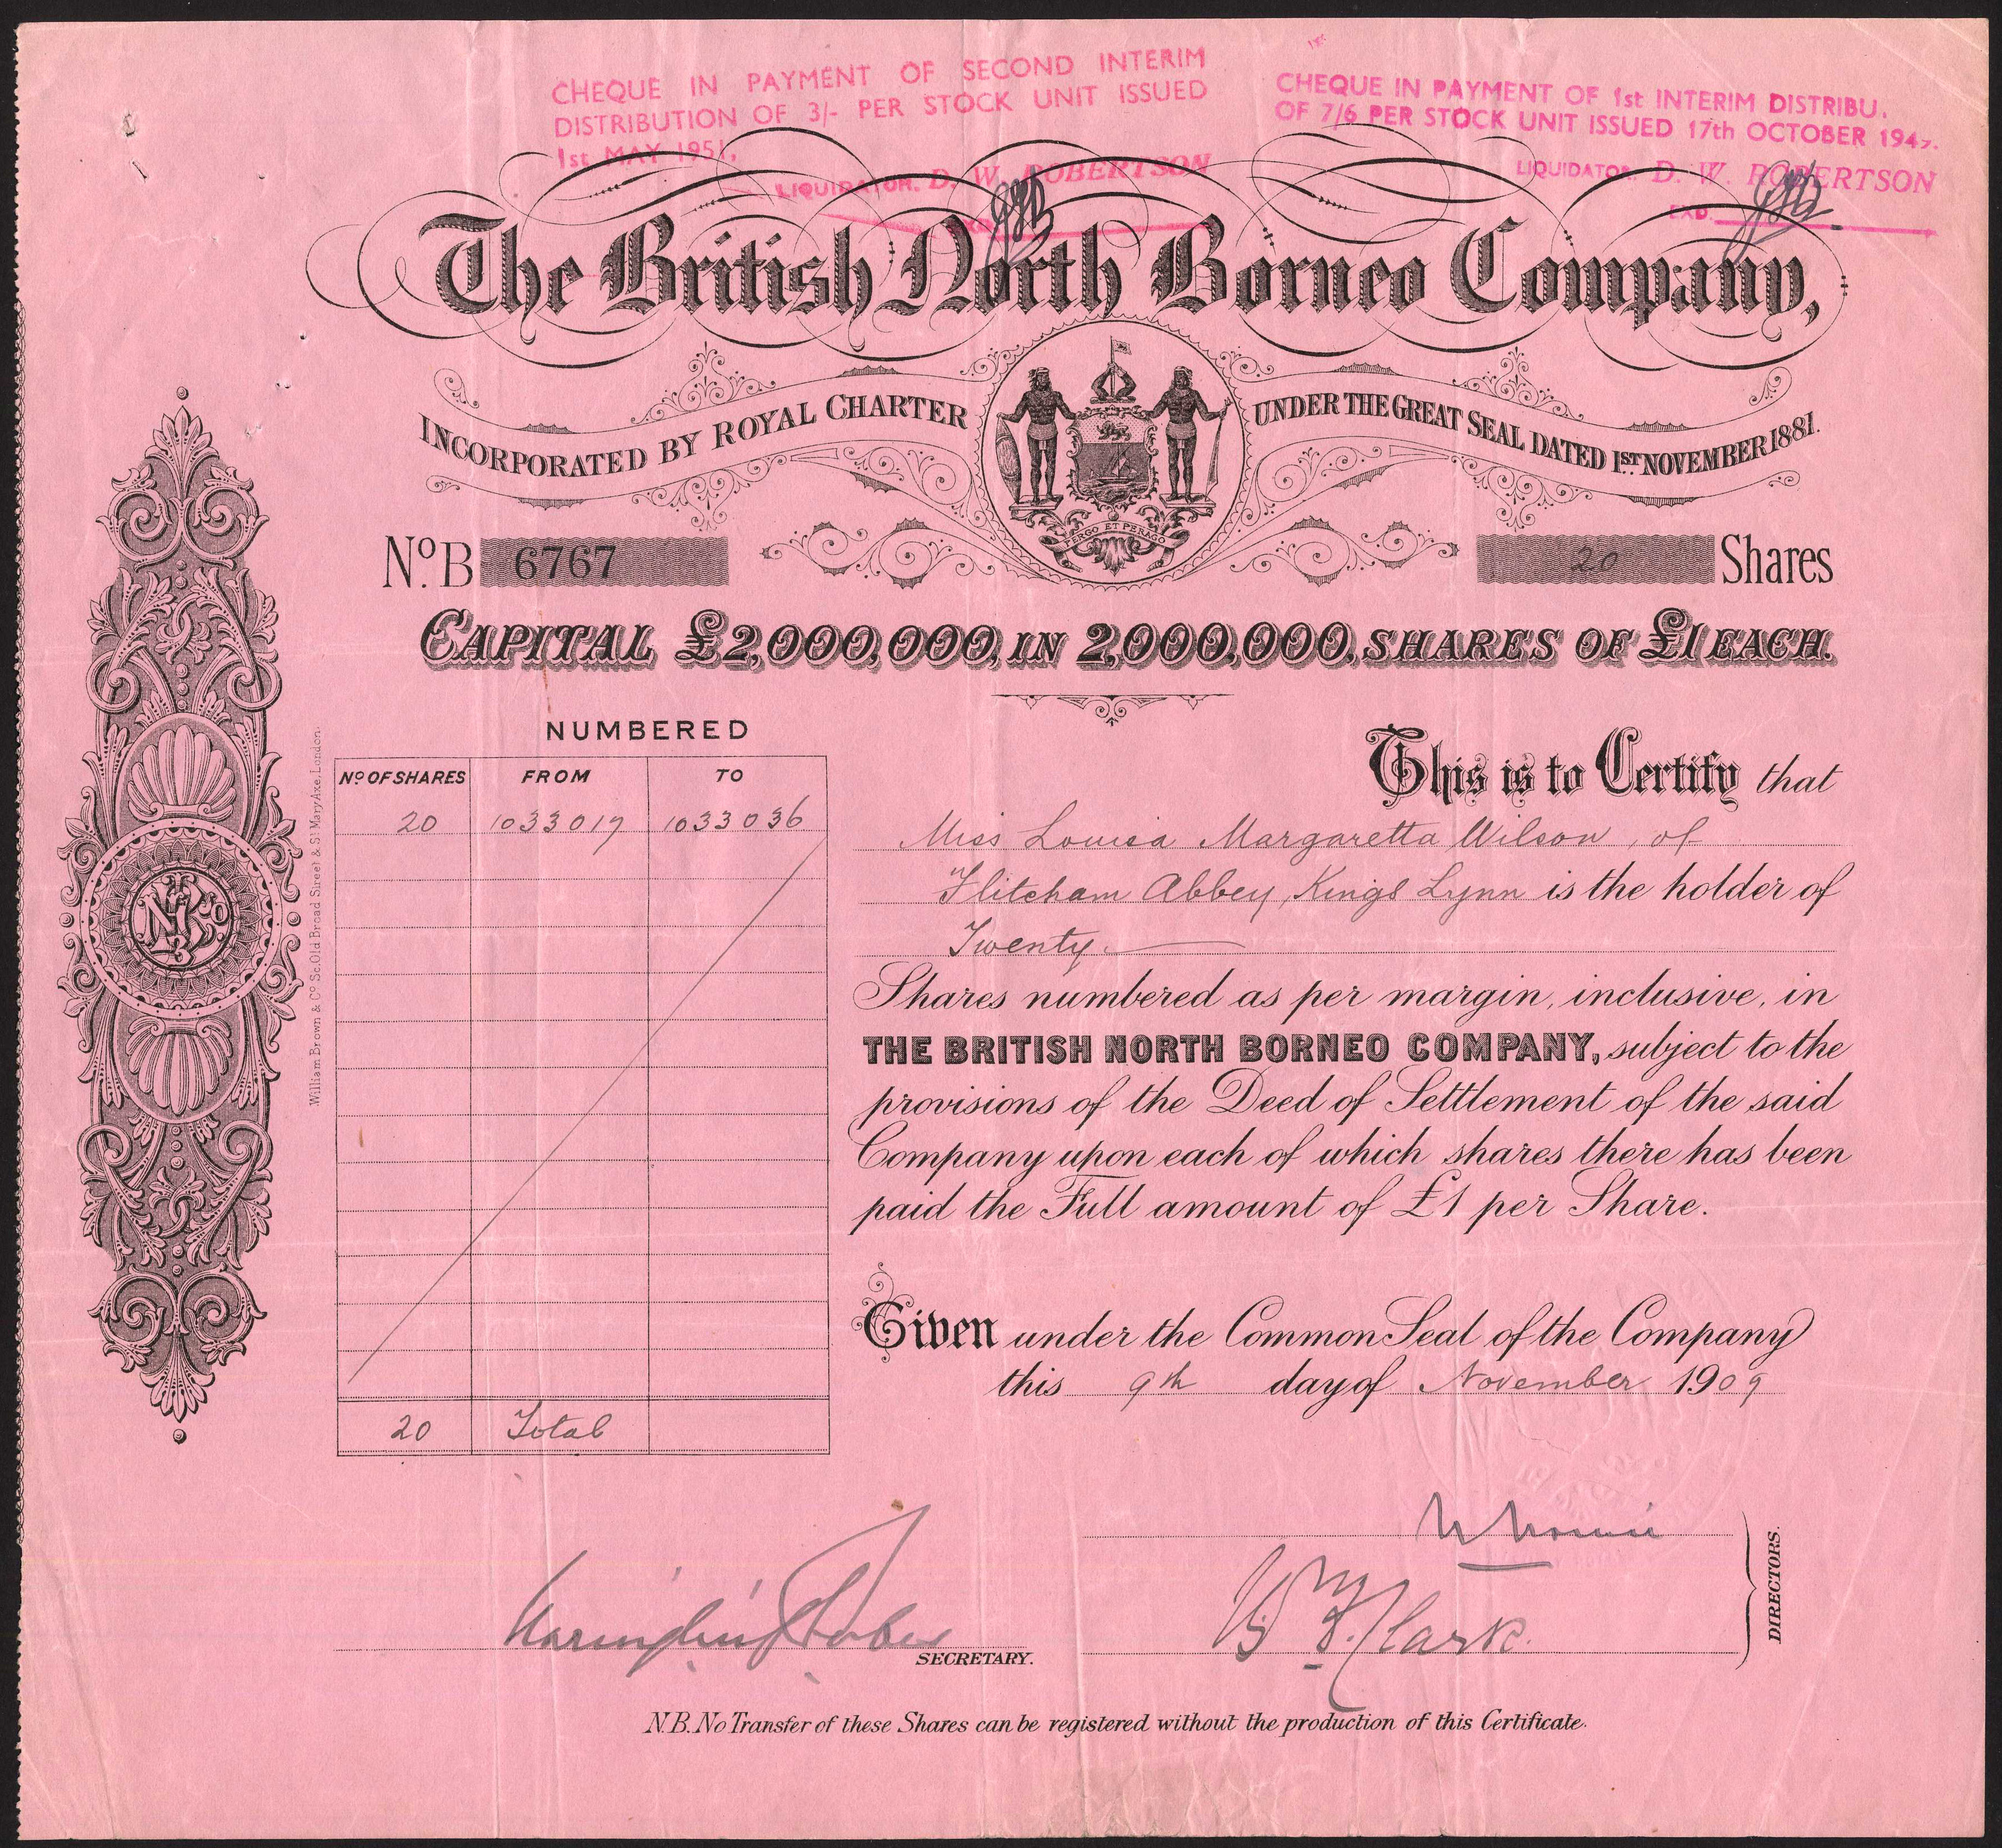 CHEQUE IN PAYMENT OF SECOND INTERIM
DISTRIBUTION OF 3/- PER STOCK UNIT ISSUED
1st MAY 1951.
LIQUIDATOR. D. W. ROBERTSON
CHEQUE IN PAYMENT OF 1st INTERIM DISTRIBU.
OF 7/6 PER STOCK UNIT ISSUED 17th OCTOBER 1947.
LIQUIDATOR. D. W. ROBERTSON
The British North Borneo Company,
INCORPORATED BY ROYAL CHARTER
UNDER THE GREAT SEAL DATED 1ST NOVEMBER 1881.
PERGO ET PERAGO
No. B 6767
20 Shares
CAPITAL £2,000,000, IN 2,000,000, SHARES OF £1 EACH.
NUMBERED
No OF SHARES FROM TO
20 1033017 1033036
20 Total
William Brown & Co Sc. Old Broad Street & St Mary Axe, London.
This is to Certify that
Miss Louisa Margaretta Wilson, of
Flitcham Abbey, Kings Lynn is the holder of
Twenty
Shares numbered as per margin, inclusive, in
THE BRITISH NORTH BORNEO COMPANY, subject to the
provisions of the Deed of Settlement of the said
Company upon each of which shares there has been
paid the Full amount of £1 per Share.
Given under the Common Seal of the Company
this 9th day of November 1909
W F. Clark.
DIRECTORS.
SECRETARY.
N.B. No Transfer of these Shares can be registered without the production of this Certificate.